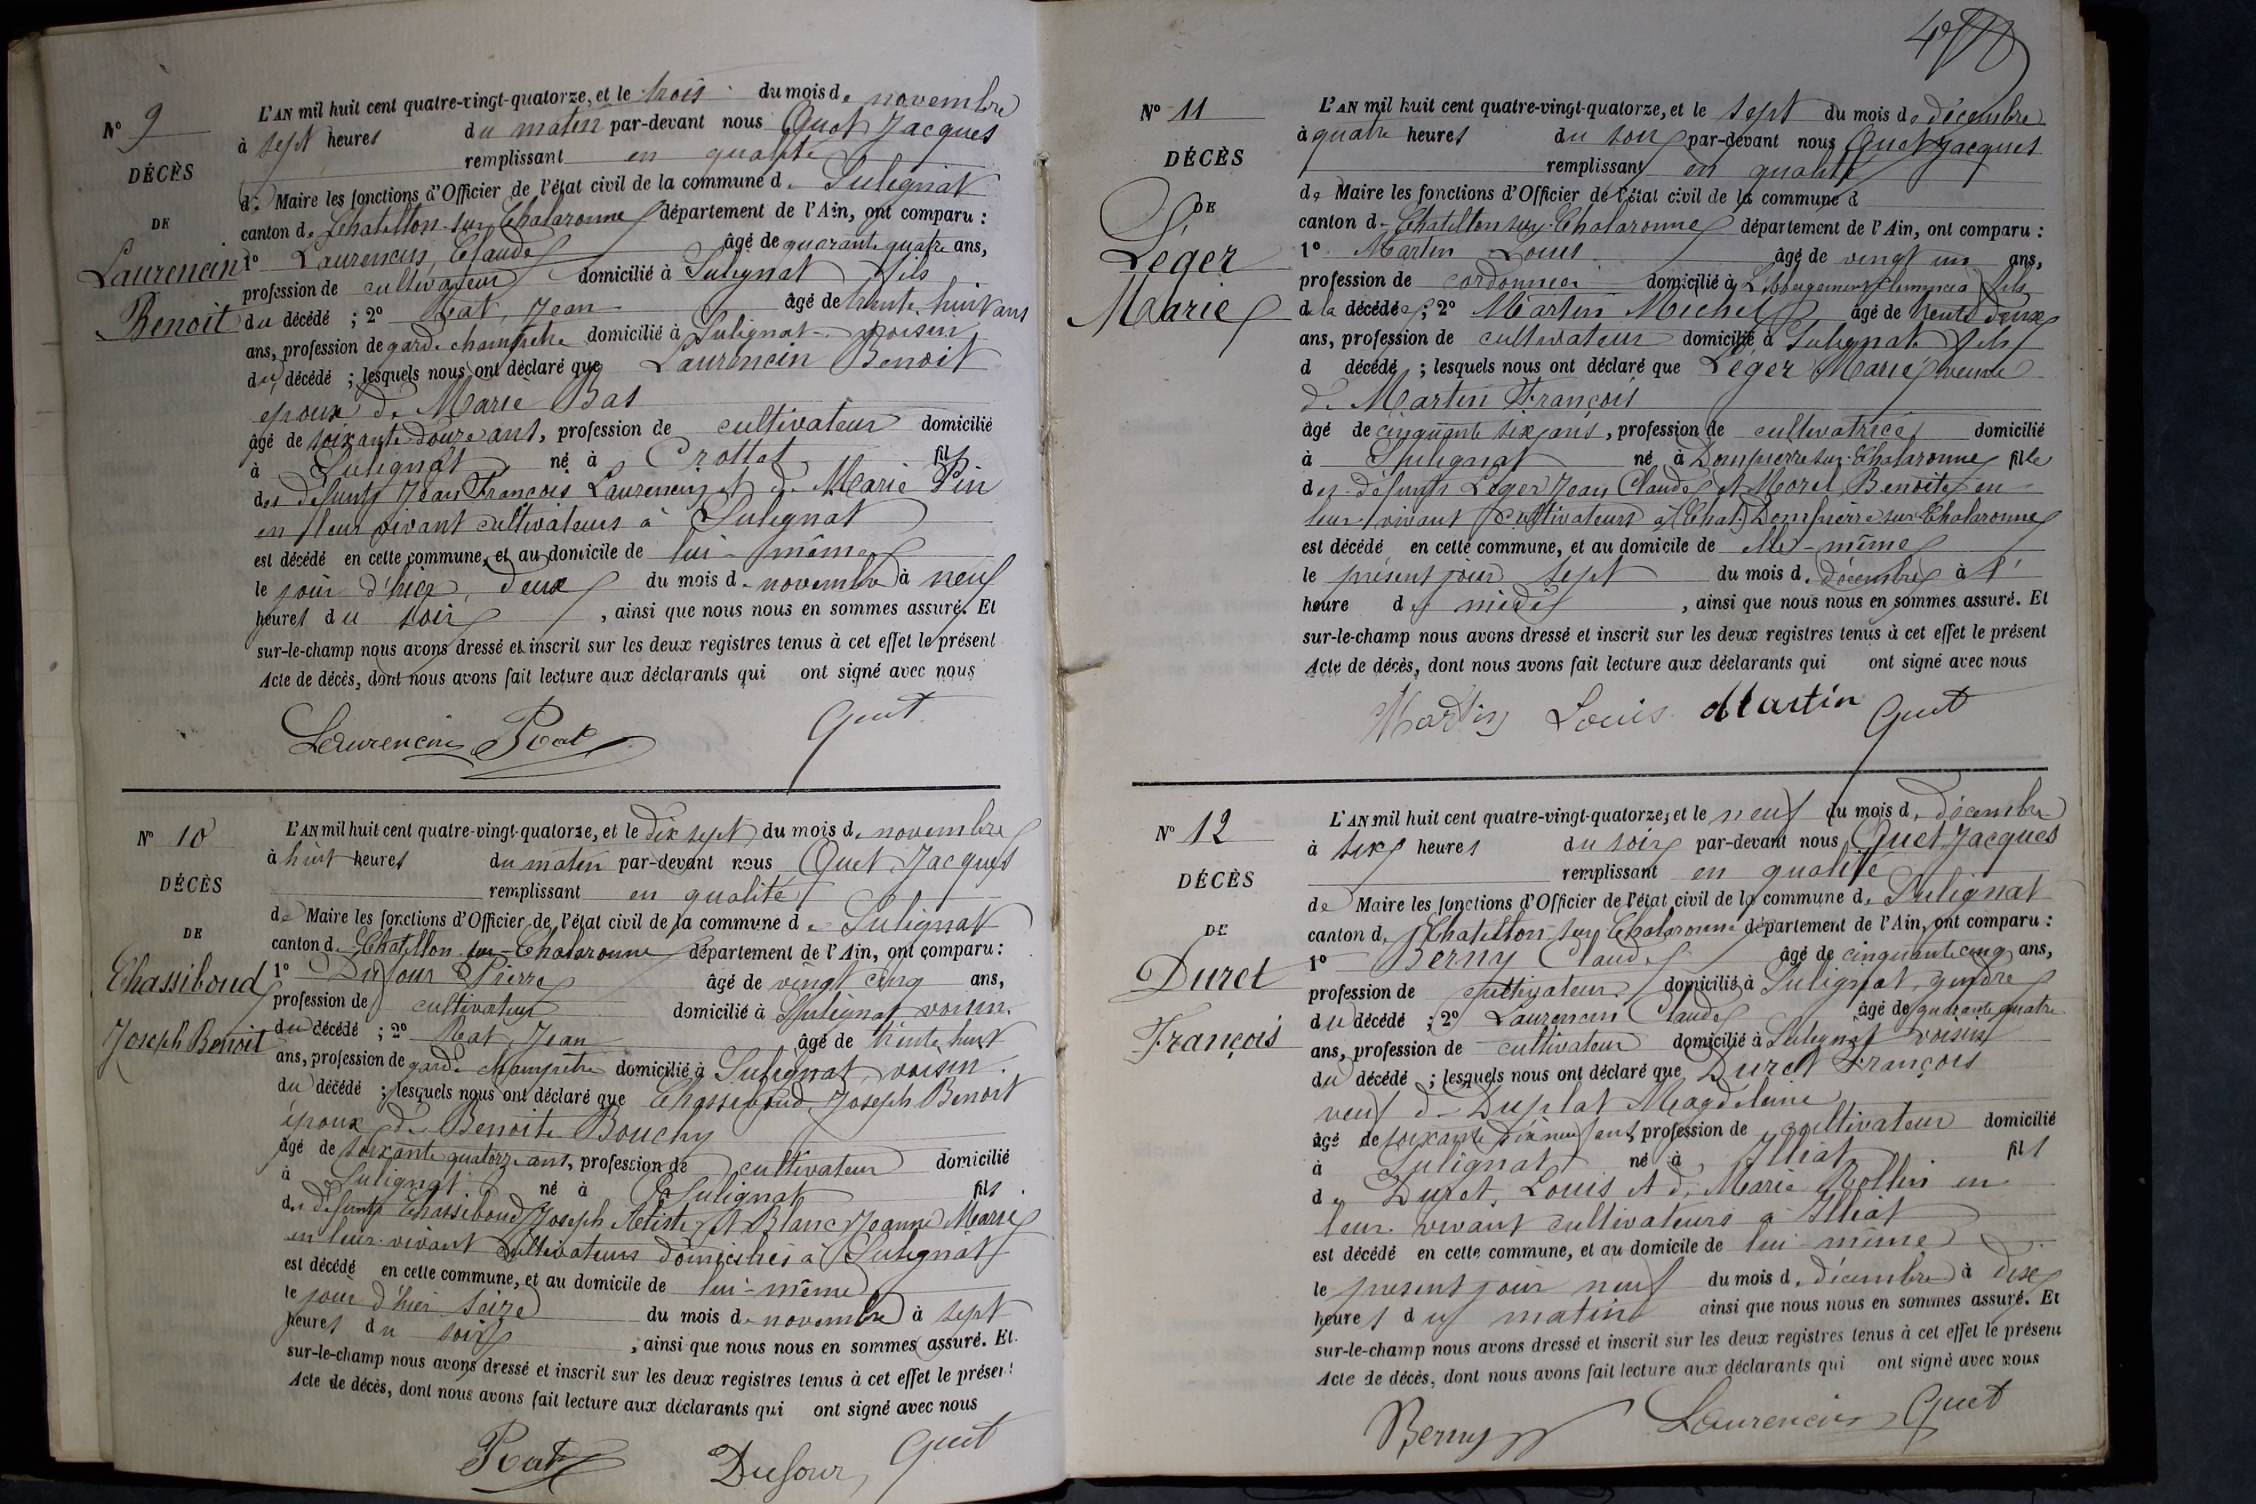 N° 9
DÉCÈS
DE
Laurencin
Benoit
L'AN mil huit cent quatre-vingt-quatorze, et le trois du mois de novembre
à sept heures du matin par-devant nous Quet Jacques
remplissant en qualité
de Maire les fonctions d'Officier de l'état civil de la commune de Sulignat
canton de Chatillon-sur-Chalaronne département de l'Ain, ont comparu :
1° Laurencin, Claude âgé de quarante quatre ans,
profession de cultivateur domicilié à Sulignat fils
du décédé ; 2° Rat, Jean âgé de trente huit ans
ans, profession de garde champêtre domicilié à Sulignat voisin
du décédé ; lesquels nous ont déclaré que Laurencin Benoit
époux de Marie Bas
âgé de soixante douze ans, profession de cultivateur domicilié
à Sulignat né à Crottet fils
des défunts Jean François Laurencin et de Marie Pin
en leur vivant cultivateurs à Sulignat
est décédé en cette commune, et au domicile de lui-même
le jour d'hier, deux du mois de novembre à neuf
heures du soir, ainsi que nous nous en sommes assuré. Et
sur-le-champ nous avons dressé et inscrit sur les deux registres tenus à cet effet le présent
Acte de décès, dont nous avons fait lecture aux déclarants qui ont signé avec nous
Laurencin Rat Quet
N° 10
DÉCÈS
DE
Chassiboud
Joseph Benoit
L'AN mil huit cent quatre-vingt-quatorze, et le dix sept du mois de novembre
à huit heures du matin par-devant nous Quet Jacques
remplissant en qualité
de Maire les fonctions d'Officier de l'état civil de la commune de Sulignat
canton de Chatillon-sur-Chalaronne département de l'Ain, ont comparu :
1° Dufour Pierre âgé de vingt cinq ans,
profession de cultivateur domicilié à Sulignat voisin.
du décédé ; 2° Rat, Jean âgé de trente huit
ans, profession de garde champêtre domicilié à Sulignat, voisin.
du décédé ; lesquels nous ont déclaré que Chassiboud, Joseph Benoit
époux de Benoite Bouchy
âgé de soixante quatorze ans, profession de cultivateur domicilié
à Sulignat né à Sulignat fils
des défunts Chassiboud Joseph et Blanc Jeanne Marie
en leur vivant cultivateurs domiciliés à Sulignat
est décédé en cette commune, et au domicile de lui-même
le jour d'hier seize du mois de novembre à sept
heures du soir, ainsi que nous nous en sommes assuré. Et
sur-le-champ nous avons dressé et inscrit sur les deux registres tenus à cet effet le présent
Acte de décès, dont nous avons fait lecture aux déclarants qui ont signé avec nous
Rat Dufour, Quet
N° 11
DÉCÈS
DE
Léger
Marie
L'AN mil huit cent quatre-vingt-quatorze, et le sept du mois de décembre
à quatre heures du soir par-devant nous Quet Jacques
remplissant en qualité
de Maire les fonctions d'Officier de l'état civil de la commune d
canton de Chatillon-sur-Chalaronne département de l'Ain, ont comparu :
1° Martin Louis âgé de vingt un ans,
profession de cordonnier domicilié à fils
de la décédée ; 2° Martin Michel âgé de trente deux
ans, profession de cultivateur domicilié à Sulignat fils
d décédé ; lesquels nous ont déclaré que Léger Marie veuve
de Martin François
âgé de cinquante six ans, profession de cultivatrice domicilié
à Sulignat né à Dompierre sur Chalaronne fille
des défunts Léger Jean Claude et Morel Benoite en
leur vivant cultivateurs à (Chat.) Dompierre sur Chalaronne
est décédé en cette commune, et au domicile de elle-même
le présent jour sept du mois de décembre à l'
heure de midi, ainsi que nous nous en sommes assuré. Et
sur-le-champ nous avons dressé et inscrit sur les deux registres tenus à cet effet le présent
Acte de décès, dont nous avons fait lecture aux déclarants qui ont signé avec nous
Martin Louis Martin Quet
N° 12
DÉCÈS
DE
Duret
François
L'AN mil huit cent quatre-vingt-quatorze, et le neuf du mois de décembre
à six heures du soir par-devant nous Quet Jacques
remplissant en qualité
de Maire les fonctions d'Officier de l'état civil de la commune de Sulignat
canton de Chatillon sur Chalaronne département de l'Ain, ont comparu :
1° Berny Claude âgé de cinquante cinq ans,
profession de cultivateur domicilié à Sulignat, gendre
du décédé ; 2° Laurencin Claude âgé de quarante quatre
ans, profession de cultivateur domicilié à Sulignat voisin
du décédé ; lesquels nous ont déclaré que Duret François
veuf de Duplat Magdeleine
âgé de soixante dix neuf ans, profession de cultivateur domicilié
à Sulignat né à Illiat fils
de Duret, Louis et de Marie Mollin en
leur vivant cultivateurs à Illiat
est décédé en cette commune, et au domicile de lui-même
le présent jour neuf du mois de décembre à dix
heures du matin ainsi que nous nous en sommes assuré. Et
sur-le-champ nous avons dressé et inscrit sur les deux registres tenus à cet effet le présent
Acte de décès, dont nous avons fait lecture aux déclarants qui ont signé avec nous
Berny Laurencin Quet